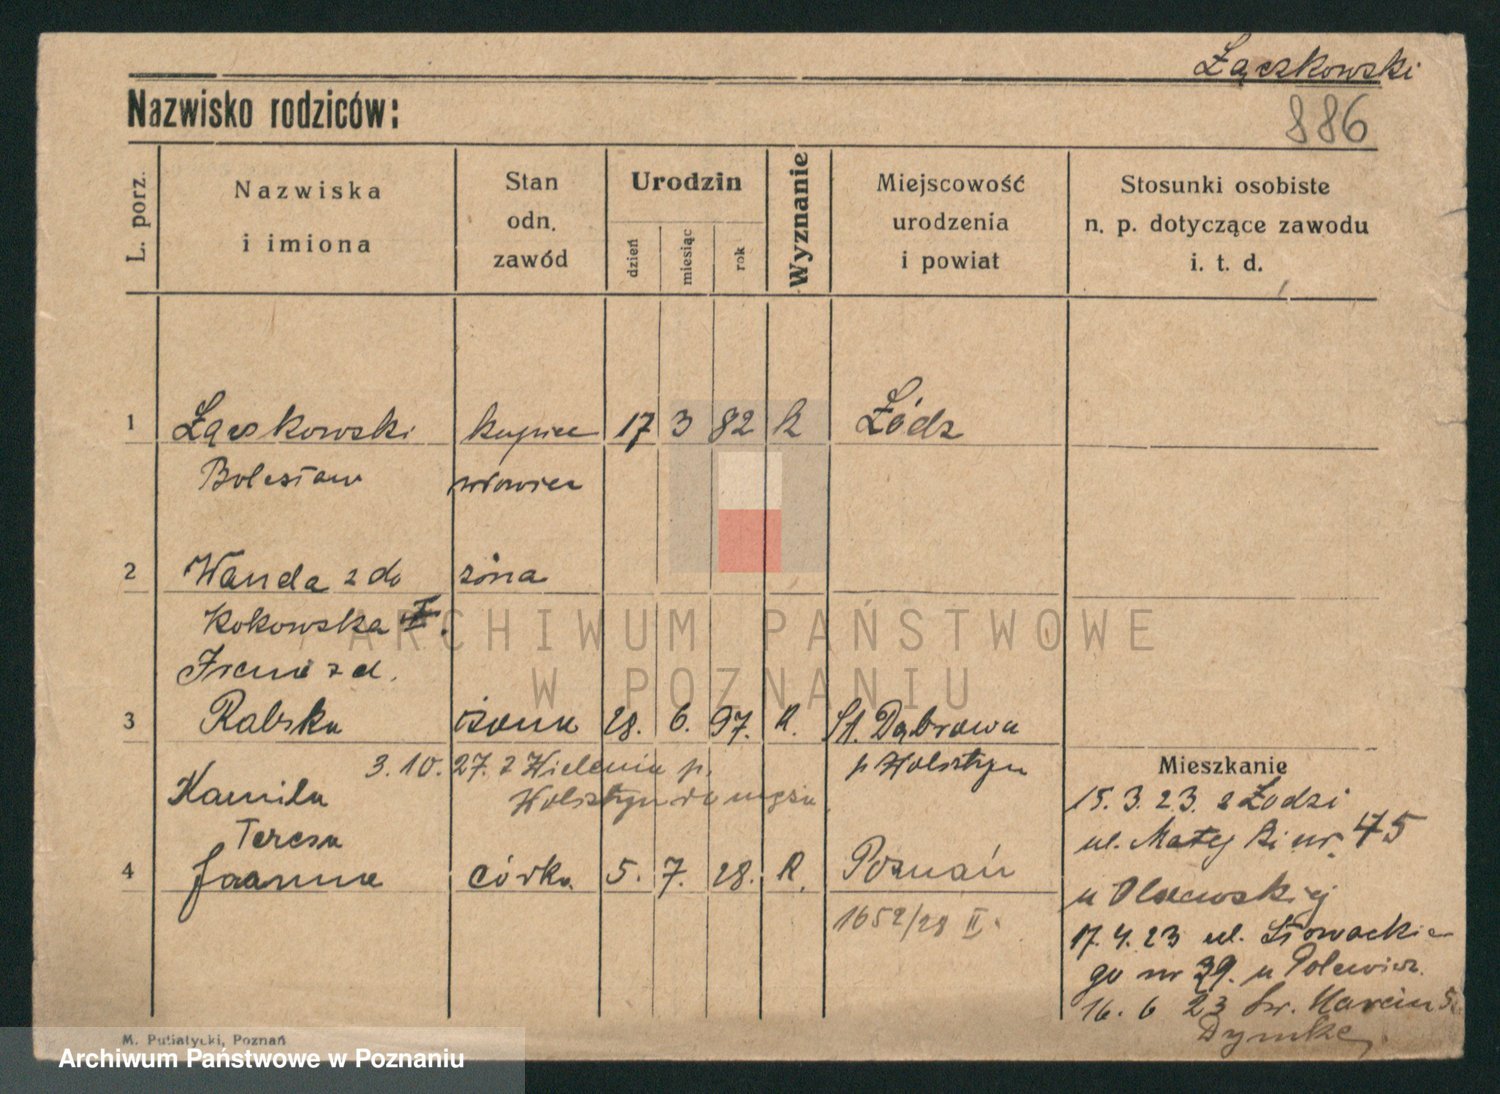 Łączkowski
Nazwisko rodziców:
886
L. porz.
Nazwiska i imiona
Stan odn. zawód
Urodzin
dzień
miesiąc
rok
Wyznanie
Miejscowość urodzenia i powiat
Stosunki osobiste n. p. dotyczące zawodu i. t. d.
1 Łączkowski kupiec 17 3 82 k Łódz
Bolesław wdowiec
2 Wanda z do żona
Kokowska I.
Irena z d.
3 Rabska żona 28. 6. 97. R. St. Dąbrowa
3.10.27. z Wielenia p. p Wolsztyn
Wolsztyn do męża
Kamila
Teresa
4 Joanna córka 5. 7. 28. R. Poznań
1652/28 II.
Mieszkanie
15.3.23. z Łodzi
ul. Matejki nr. 45
u Olszewskiej
17.4.23 ul. Słowackie
go nr 39. u
16. 6 23 Św. Marcin
Dymke
M. Putiatycki, Poznań
ARCHIWUM PAŃSTWOWE
W POZNANIU
Archiwum Państwowe w Poznaniu